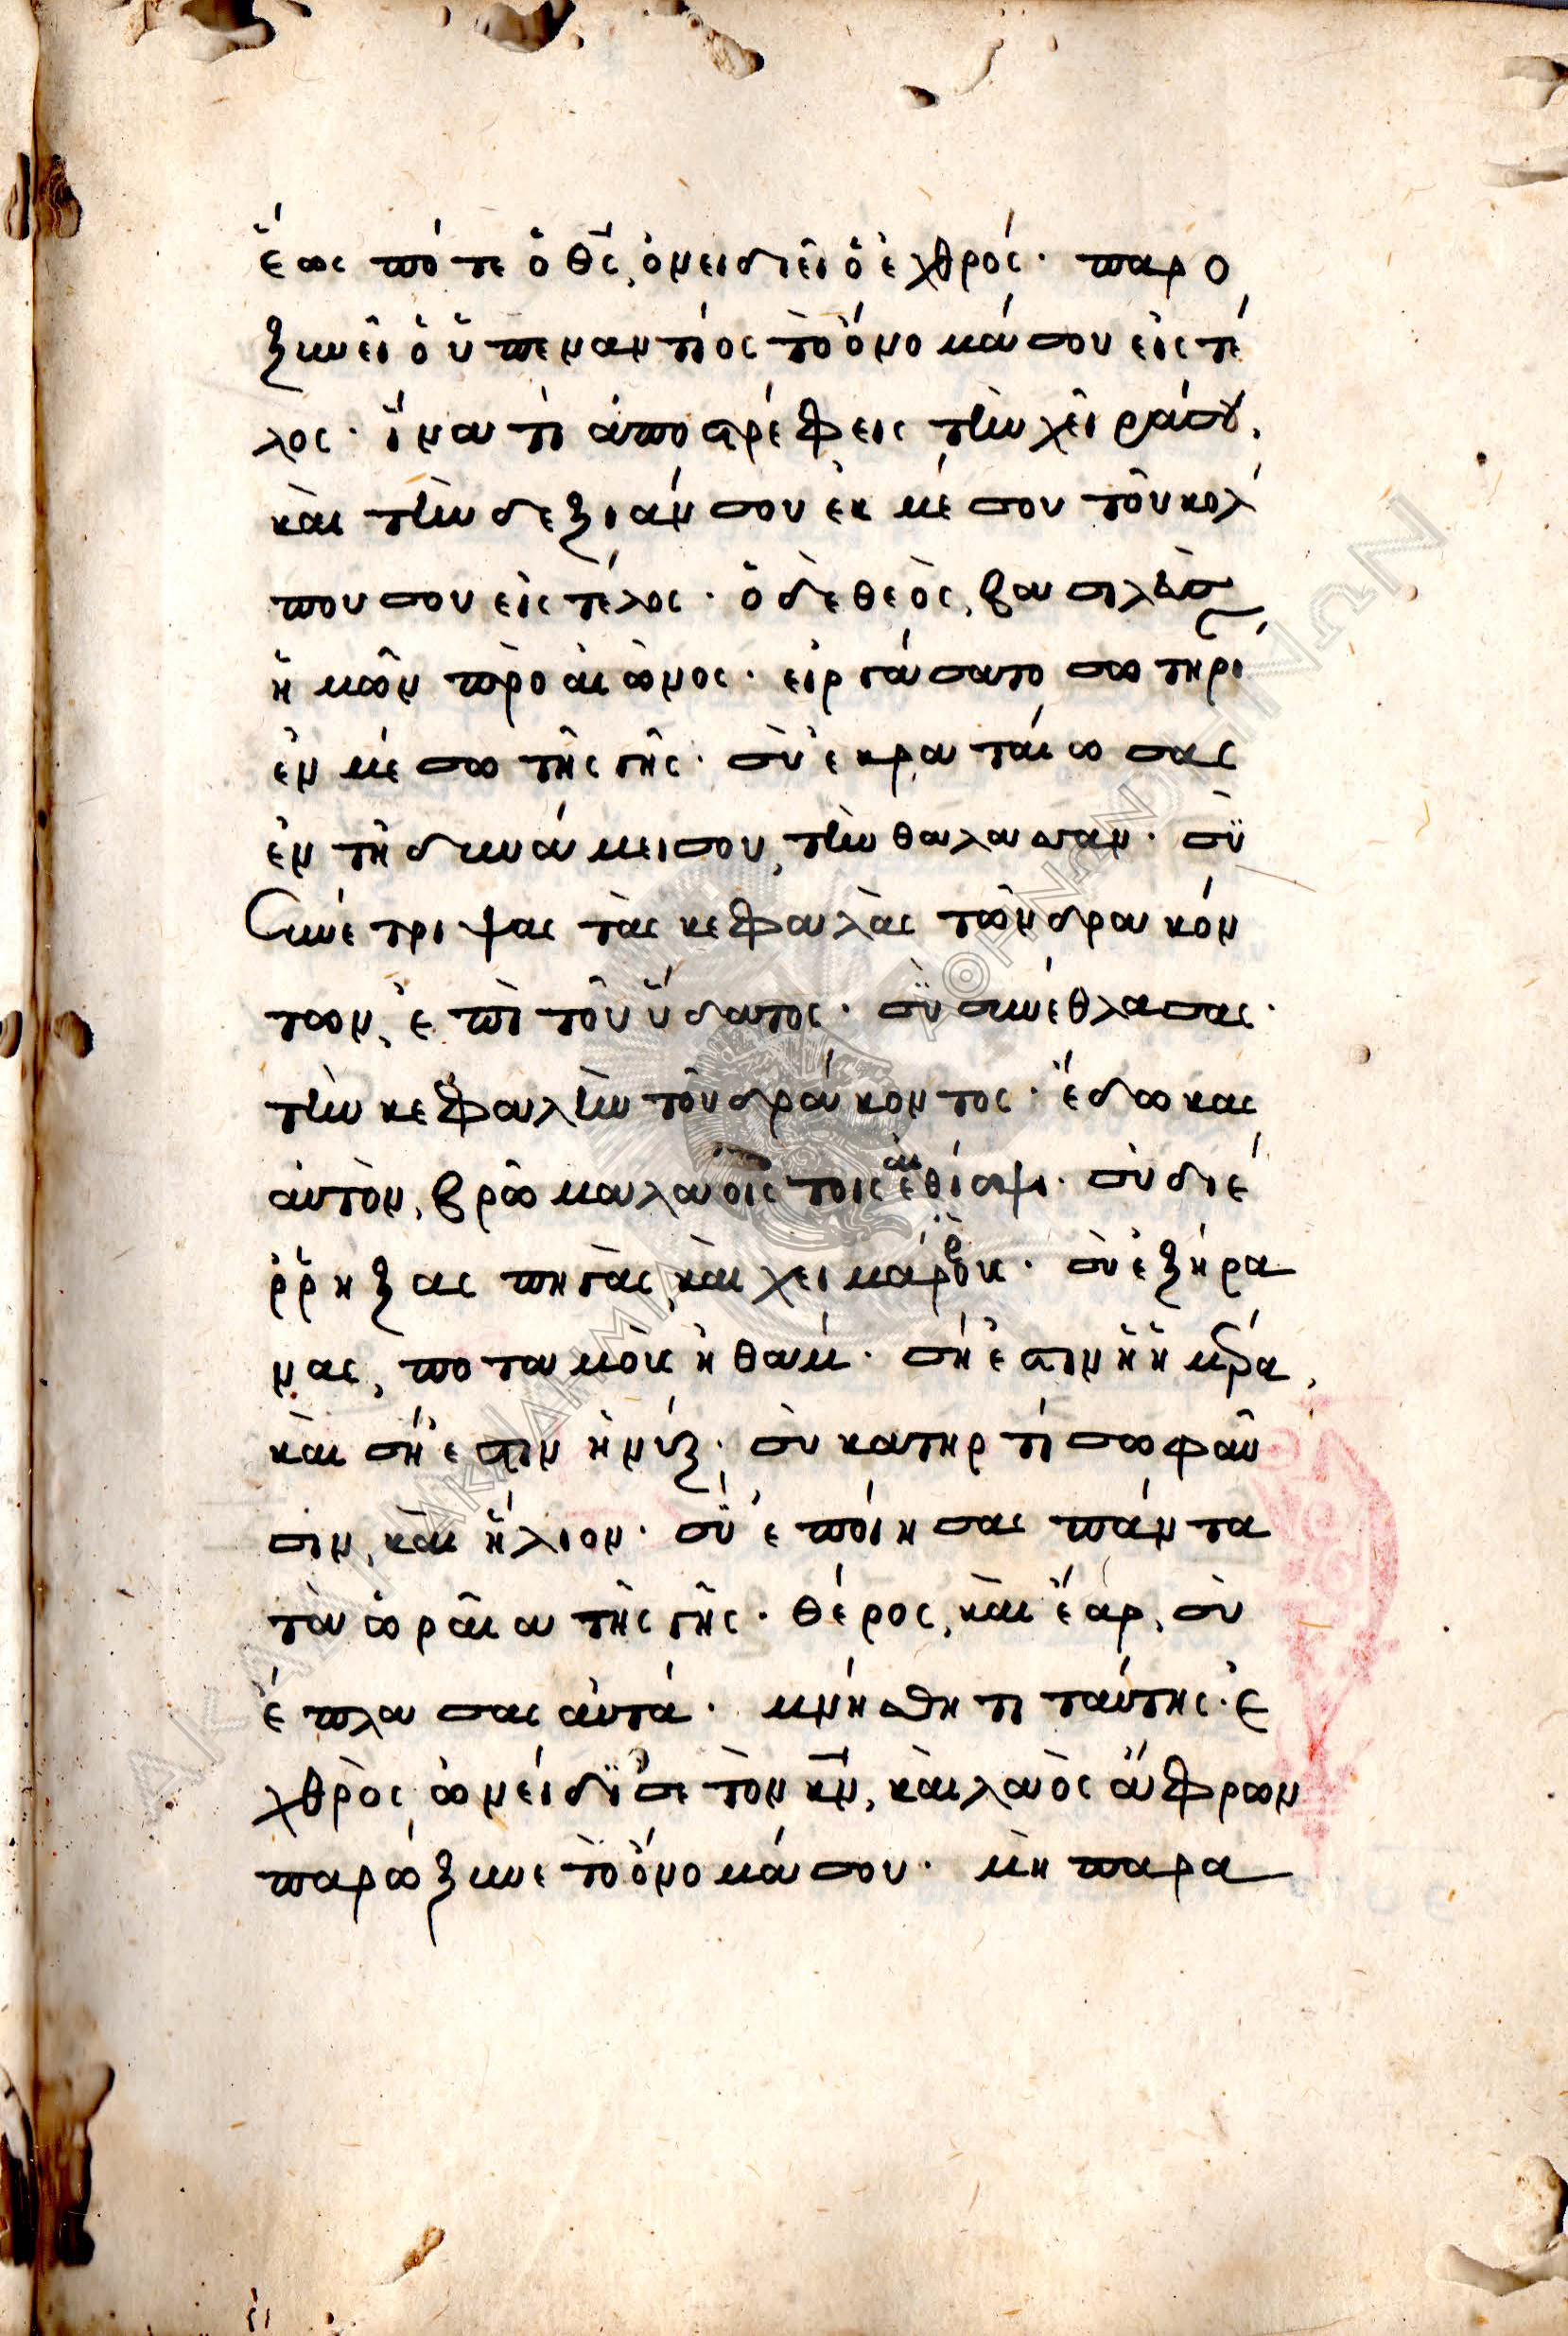 ἕως πότε ὁ θς̄, ὀνειδιεῖ ὁ ἐχθρός· παρο
ξυνεῖ ὁ ὑπεναντίος τὸ ὄνομά σου εἰς τέ
λος· ἵνα τί ἀποστρέφεις τὴν χεῖρά σου,
καὶ τὴν δεξιάν σου ἐκ μέσου τοῦ κόλ
που σου εἰς τέλος· ὁ δὲ θεὸς, βασιλεὺς
ἡμῶν πρὸ αἰῶνος· εἰργάσατο σωτηρί
ἐν μέσω τῆς γῆς· σὺ ἐκραταίωσας
ἐν τῆ δυνάμει σου, τὴν θάλασσαν· σὺ
συνέτριψας τὰς κεφαλὰς τῶν δρακόν
των, ἐπὶ τοῦ ὕδατος· σὺ συνέθλασας·
τὴν κεφαλὴν τοῦ δράκοντος· ἔδωκας
αὐτὸν, βρῶμα λαοῖς τοῖς αἰθίοψι· σὺ διέ
ρρηξας πηγὰς, καὶ χειμάρρους· σὺ ἐξήρα
νας, ποταμοὺς ἠθάμ· σή ἐστιν ἡ ἡμέρα,
καὶ σή ἐστιν ἡ νύξ· σὺ κατηρτίσω φαῦ
σιν, καὶ ἥλιον· σὺ ἐποίησας πάντα
τὰ ὡραῖα τῆς γῆς· θέρος, καὶ ἔαρ, σὺ
ἔπλασας αὐτά· μνήσθητι ταύτης· ἐ
χθρὸς ὠνείδισε τὸν κν̄, καὶ λαὸς ἄφρων
παρώξυνε τὸ ὄνομά σου· μὴ παρα
ΑΚΑΔΗΜΙΑ ΑΘΗΝΩΝ
ΑΚΑΔΗΜΙΑ ΑΘΗΝΩΝ